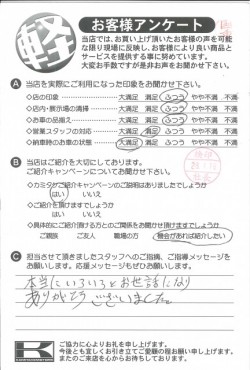 軽
お客様アンケート
当店では、お買い上げ頂いたお客様の声を可能
な限り現場に反映し、お客様により良い商品と
サービスを提供する事に努めています。
大変お手数ですが是非お声をお聞かせ下さい。
A 当店を実際にご利用になった印象をお聞かせ下さい。
◇店の印象 大満足 満足 ふつう やや不満 不満
◇店内・展示場の清掃 大満足 満足 ふつう やや不満 不満
◇お車の品揃え 大満足 満足 ふつう やや不満 不満
◇営業スタッフの対応 大満足 満足 ふつう やや不満 不満
◇納車時のお車の状態 大満足 満足 ふつう やや不満 不満
B 当店はご紹介を大切にしております。
ご紹介キャンペーンについてお聞かせ下さい。
◇カミタがご紹介キャンペーンのご説明はありましたでしょうか
はい いいえ
◇ご紹介を頂けますでしょうか
はい いいえ
◇具体的にご紹介頂ける方とのご関係をお聞かせ頂けますでしょうか
ご親族 ご友人 職場の方 機会があれば紹介したい
C 担当させて頂きましたスタッフへのご指摘、ご指導メッセージを
お願いします。応援メッセージもぜひお願いします。
本当にいろいろとお世話になり
ありがとうございました。
K
ご協力に心よりお礼を申し上げます。
今後とも宜しくお引き立てご愛顧の程お願い申し上げます。
またのご来店を心からお待ちしております。